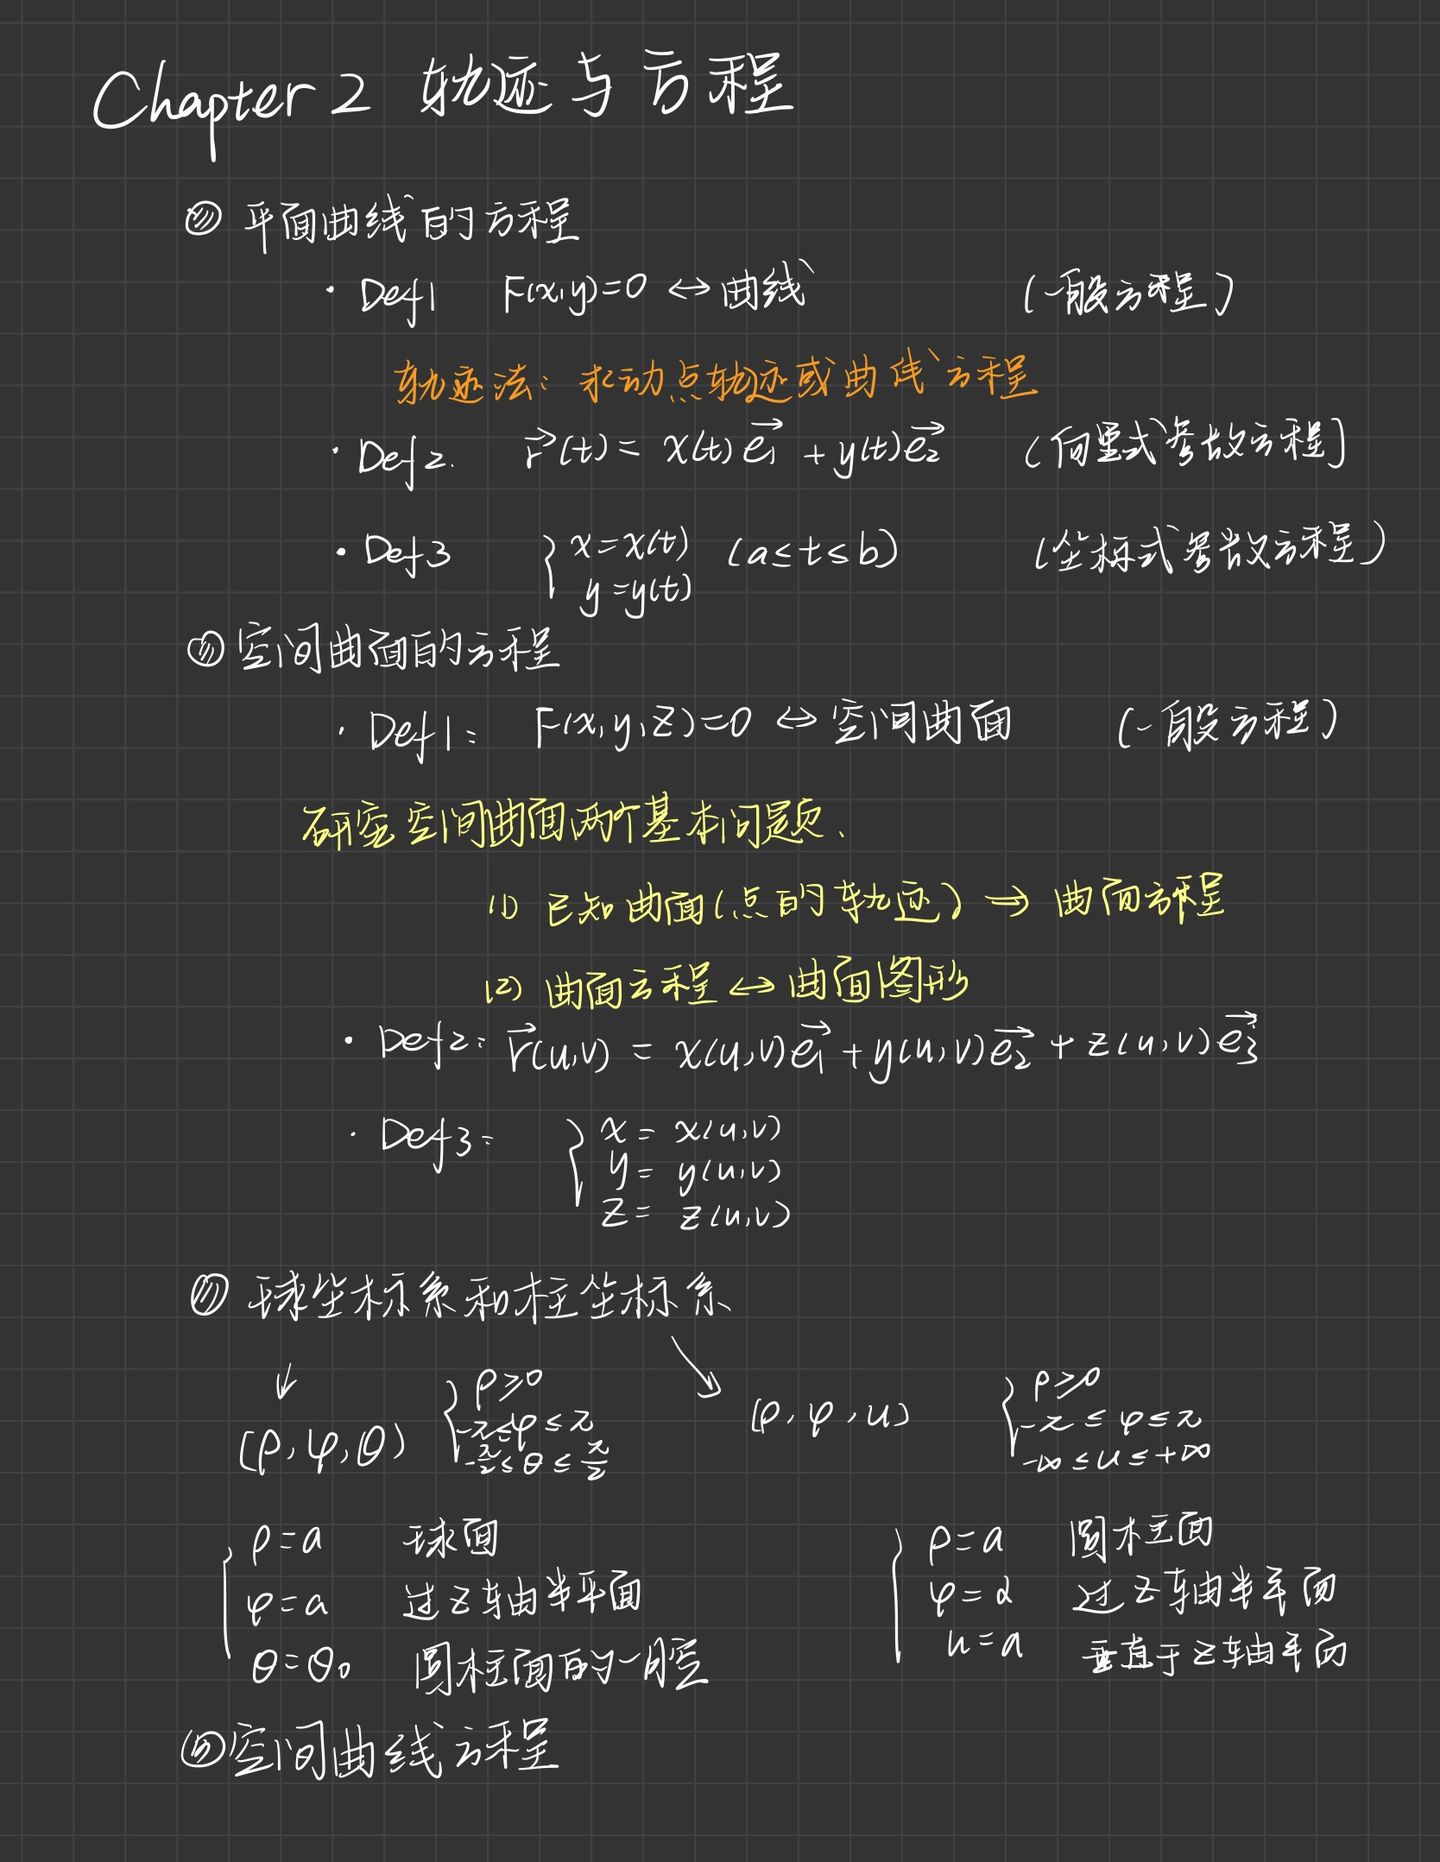 Chapter 2 轨迹与方程
平面曲线的方程
· Def1 F(x,y)=0 ↔ 曲线 (一般方程)
轨迹法: 求动点轨迹或曲线方程
· Def2. r⃗(t) = x(t)e₁⃗ + y(t)e₂⃗ (向量式参数方程]
· Def3 { x=x(t) (a≤t≤b) (坐标式参数方程)
y=y(t)
空间曲面的方程
· Def1: F(x,y,z)=0 ↔ 空间曲面 (一般方程)
研究空间曲面两个基本问题、
(1) 已知曲面(点的轨迹) → 曲面方程
(2) 曲面方程 ↔ 曲面图形
· Def2: r⃗(u,v) = x(u,v)e₁⃗ + y(u,v)e₂⃗ + z(u,v)e₃⃗
· Def3: { x = x(u,v)
y = y(u,v)
z = z(u,v)
球坐标系和柱坐标系
↓ ↘
(ρ,φ,θ) { ρ≥0
-π≤φ≤π
-π/2≤θ≤π/2
(ρ,φ,u) { ρ≥0
-π≤φ≤π
-∞≤u≤+∞
{ ρ=a 球面
φ=a 过z轴半平面
θ=θ₀ 圆柱面的一腔
{ ρ=a 圆柱面
φ=α 过z轴半平面
u=a 垂直于z轴平面
空间曲线方程